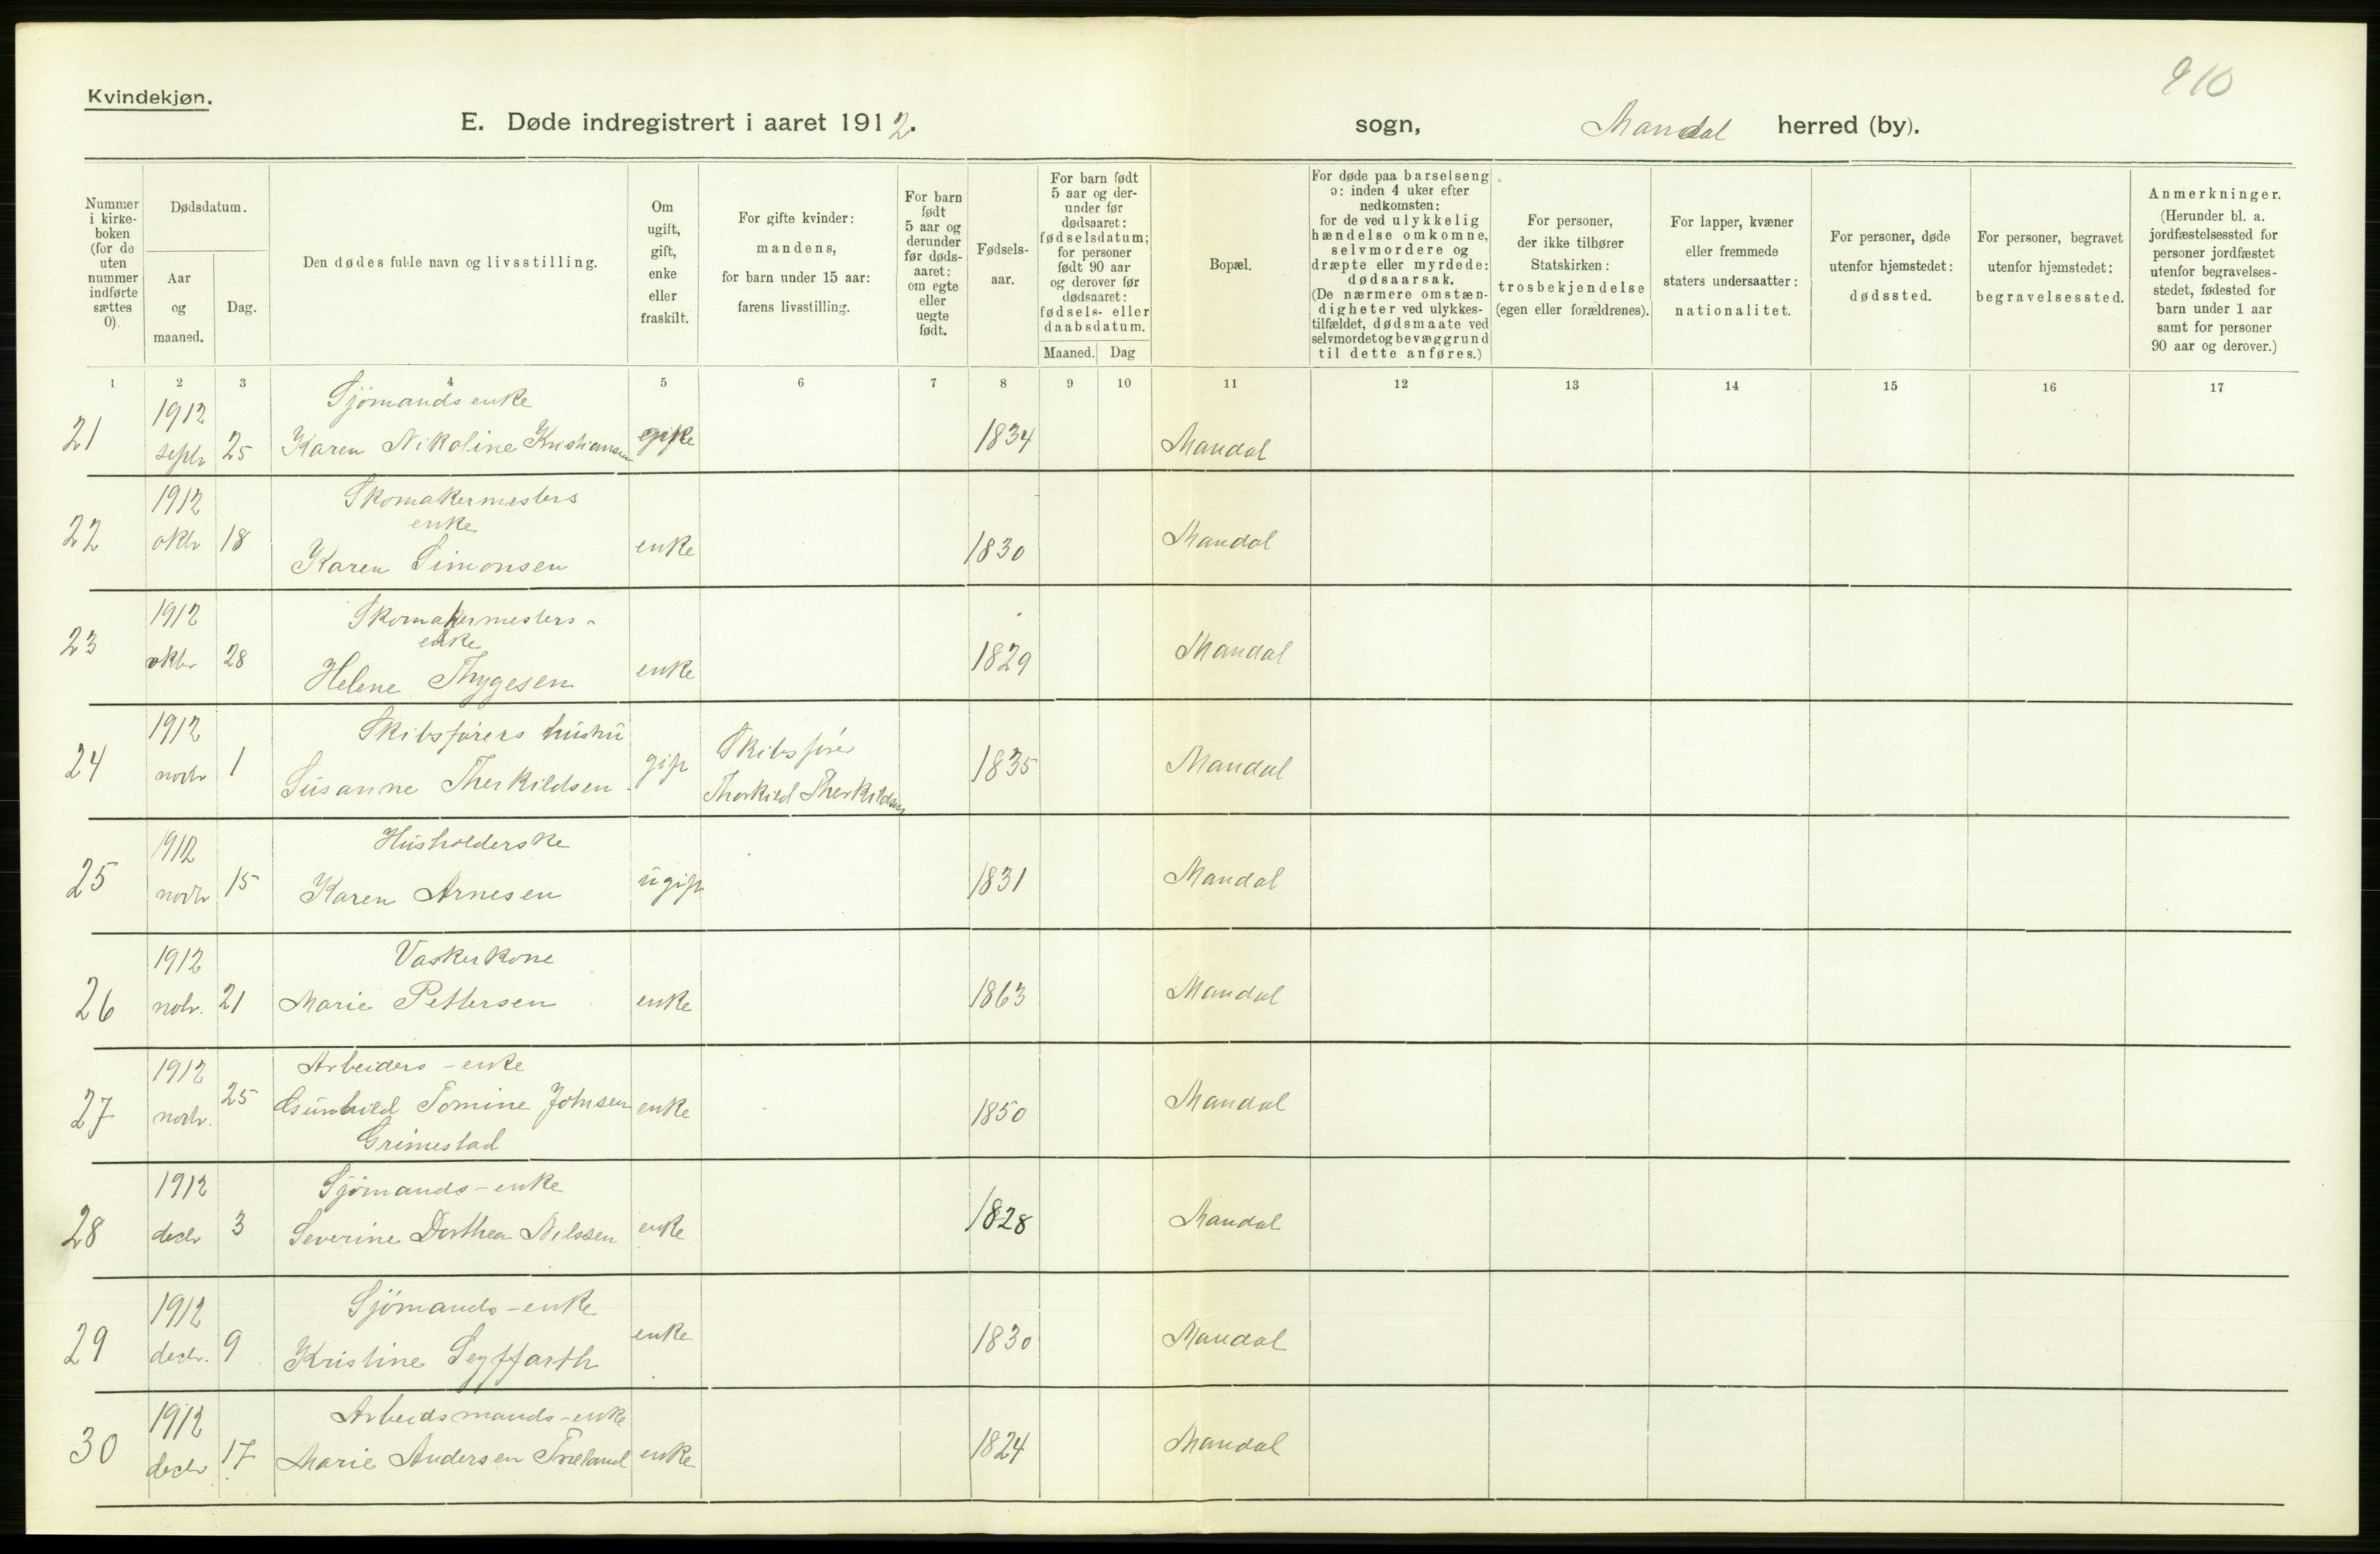 910
Kvindekjøn.
E. Døde indregistrert i aaret 1912. sogn, Mandal herred (by).
Nummer i kirkeboken (for de uten nummer indførte sættes 0).
Dødsdatum.
Aar og maaned.
Dag.
Den dødes fulde navn og livsstilling.
Om ugift, gift, enke eller fraskilt.
For gifte kvinder: mandens, for barn under 15 aar: farens livsstilling.
For barn født 5 aar og derunder før dødsaaret: om egte eller uegte født.
Fødselsaar.
For barn født 5 aar og derunder før dødsaaret: fødselsdatum; for personer født 90 aar og derover før dødsaaret: fødsels- eller daabsdatum.
Maaned. Dag
Bopæl.
For døde paa barselseng ɔ: inden 4 uker efter nedkomsten: for de ved ulykkelig hændelse omkomne, selvmordere og dræpte eller myrdede: dødsaarsak. (De nærmere omstændigheter ved ulykkestilfældet, dødsmaate ved selvmordet og bevæggrund til dette anføres.)
For personer, der ikke tilhører Statskirken: trosbekjendelse (egen eller forældrenes).
For lapper, kvæner eller fremmede staters undersaatter: nationalitet.
For personer, døde utenfor hjemstedet: dødssted.
For personer, begravet utenfor hjemstedet: begravelsessted.
Anmerkninger. (Herunder bl. a. jordfæstelsessted for personer jordfæstet utenfor begravelsesstedet, fødested for barn under 1 aar samt for personer 90 aar og derover.)
1 2 3 4 5 6 7 8 9 10 11 12 13 14 15 16 17
1912 Sjømandsenke
21 septr 25 Karen Nikoline Kristiansen 1834 Mandal
1912 Skomakermesters
enke
22 oktr 18 Karen Simonsen enke 1830 Mandal
1912 Skomakermesters-
enke
23 oktbr 28 Helene Thygesen enke 1829 Mandal
1912 Skibsførers hustru Skibsfører
24 novbr 1 Susanne Therkildsen gift Thorkild Therkildsen 1835 Mandal
1912 Husholderske
25 novbr 15 Karen Arnesen ugift 1831 Mandal
1912 Vaskerkone
26 nobr. 21 Marie Pettersen enke 1863 Mandal
1912 Arbeiders-enke
27 novbr. 25 Gunhild Tomine Johnsen enke 1850 Mandal
Grimestad
1912 Sjømands-enke
28 decbr 3 Severine Dorthea Nilssen enke 1828 Mandal
1912 Sjømands-enke
29 decbr. 9 Kristine Seyffarth enke 1830 Mandal
1912 Arbeidsmands-enke
30 decbr 17 Marie Andersen Træland enke 1824 Mandal